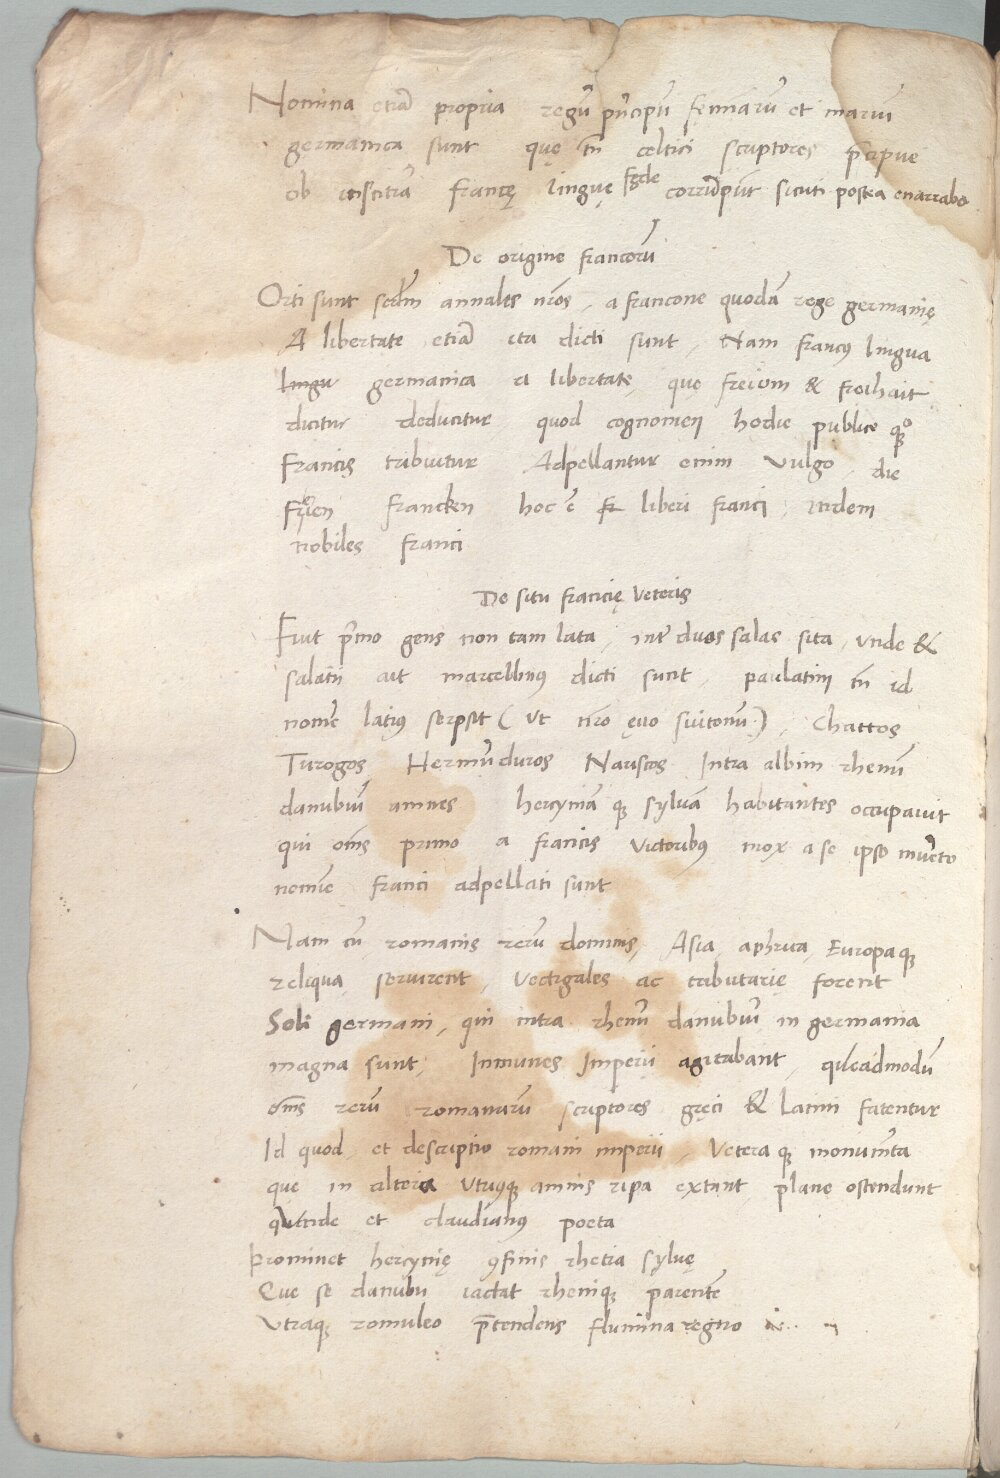 Nomina etiā propria regū prīcipū fęminarū et mariū
germanica sunt quę tn̄ celtici scriptores p̄cipue
ob inscitiā francę linguę fęde corrūpūt sicuti postea enarrabo
De origine francorū
Orti sunt scdm̄ annales nr̄os, a francone quodā rege germanię
A libertate etiā ita dicti sunt, Nam francꝰ lingua
lingu germanica a libertate, que freium & freihait
dicitur deducitur quod cognomen hodie publice qꝫ
Francis tribuitur Adpellantur enim vulgo die
freien francken hoc ē liberi franci, itidem
nobiles franci
De situ francię veteris
Fuit p̄mo gens non tam lata, inter duos salas sita, unde &
salaii ait marcellinꝰ dicti sunt, paulatim tn̄ id
nomē latiꝰ serpsit (ut nr̄o ęuo suitonū), Chattos
Turogos Hermūduros Nariscos Intra albim rhenū
danubiū amnes hercyniā qꝫ syluā habitantes occupauit
qui om̄s primo a francis victoribꝰ mox a se ipso inuēto
nomīe franci adpellati sunt
Nam cū romanis rerū dominis, Asia, aphrica, Europa qꝫ
reliqua, seruirent, vectigales ac tributarię forent
Soli germani, qui intra rhenū danubiū, in germania
magna sunt, Inmunes Imperii agitabant, quēadmodū
om̄s rerū romanarū scriptores gręci & latini fatentur
Id quod, et descriptio romani imperii, vetera qꝫ monumēta
que in altera utriusqꝫ amnis ripa extant plane ostendunt
Unde et claudianꝰ poeta
Prominet hercynię ꝯfinis rhetia syluę
Que se danubii iactat rheniqꝫ parentē
Utraqꝫ romuleo p̄tendens flumina regno